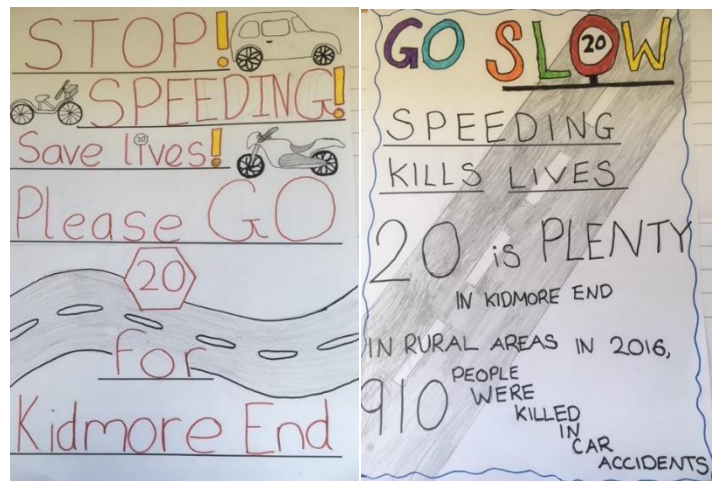 STOP!
SPEEDING!
Save lives!
20
Please GO
20
for
Kidmore End
GO SLOW
20
SPEEDING
KILLS LIVES
20 is PLENTY
IN KIDMORE END
IN RURAL AREAS IN 2016,
910 PEOPLE
WERE
KILLED
IN
CAR
ACCIDENTS